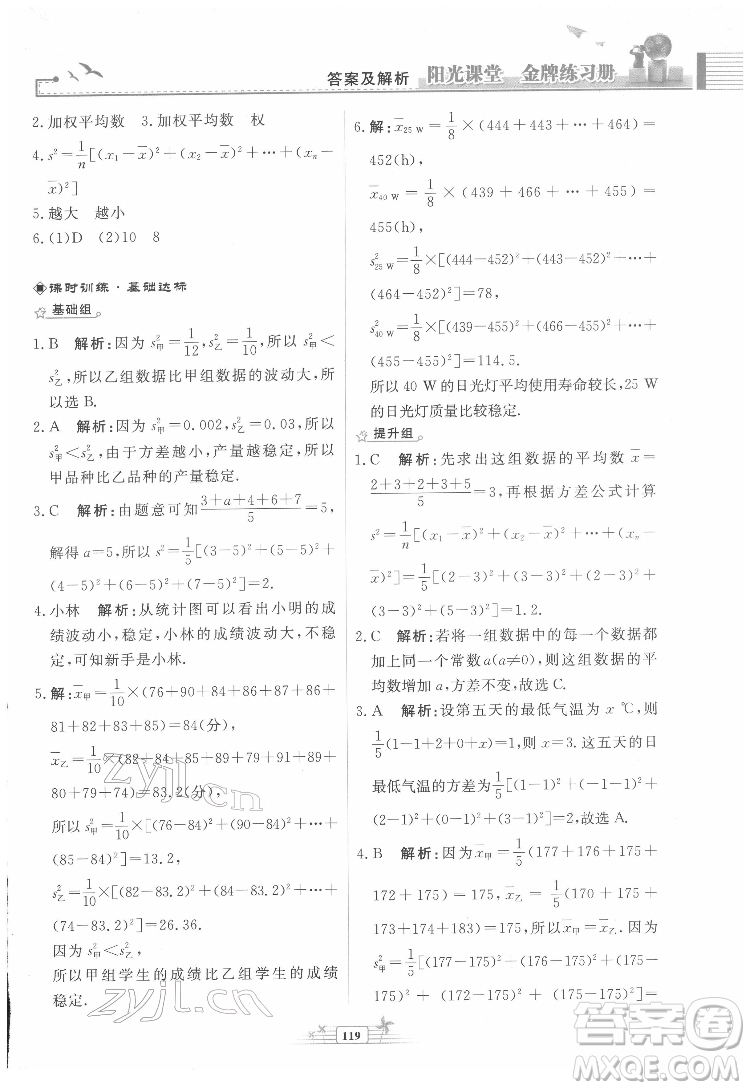 答案及解析 阳光课堂 金牌练习册
2. 加权平均数 3. 加权平均数 权
4. s²=1/n[(x₁-x̄)²+(x₂-x̄)²+…+(xₙ-
x̄)²]
5. 越大 越小
6. (1)D (2)10 8
课时训练·基础达标
基础组
1. B 解析:因为 s²甲=1/12, s²乙=1/10,所以 s²甲<
s²乙,所以乙组数据比甲组数据的波动大,所
以选 B.
2. A 解析:因为 s²甲=0.002, s²乙=0.03,所以
s²甲<s²乙,由于方差越小,产量越稳定,所以
甲品种比乙品种的产量稳定.
3. C 解析:由题意可知(3+a+4+6+7)/5=5,
解得 a=5,所以 s²=1/5[(3-5)²+(5-5)²+
(4-5)²+(6-5)²+(7-5)²]=2.
4. 小林 解析:从统计图可以看出小明的成
绩波动小,稳定,小林的成绩波动大,不稳
定,可知新手是小林.
5. 解: x̄甲=1/10×(76+90+84+86+87+86+
81+82+83+85)=84(分),
x̄乙=1/10×(82+84+85+89+79+91+89+
80+79+74)=83.2(分)
所以 s²甲=1/10×[(76-84)²+(90-84)²+…+
(85-84)²]=13.2,
s²乙=1/10×[(82-83.2)²+(84-83.2)²+…+
(74-83.2)²]=26.36.
因为 s²甲<s²乙,
所以甲组学生的成绩比乙组学生的成绩
稳定.
6. 解: x̄25 W=1/8×(444+443+…+464)=
452(h),
x̄40 W=1/8×(439+466+…+455)=
455(h),
s²25 W=1/8×[(444-452)²+(443-452)²+…+
(464-452)²]=78,
s²40 W=1/8×[(439-455)²+(466-455)²+…+
(455-455)²]=114.5.
所以 40 W 的日光灯平均使用寿命较长,25 W
的日光灯质量比较稳定.
提升组
1. C 解析:先求出这组数据的平均数 x̄=
(2+3+2+3+5)/5=3,再根据方差公式计算
s²=1/n[(x₁-x̄)²+(x₂-x̄)²+…+(xₙ-
x̄)²]=1/5[(2-3)²+(3-3)²+(2-3)²+
(3-3)²+(5-3)²]=1.2.
2. C 解析:若将一组数据中的每一个数据都
加上同一个常数 a(a≠0),则这组数据的平
均数加 a,方差不变,故选 C.
3. A 解析:设第五天的最低气温为 x ℃,则
1/5(1-1+2+0+x)=1,所以 x=3.这五天的日
最低气温的方差为1/5[(1-1)²+(-1-1)²+
(2-1)²+(0-1)²+(3-1)²]=2,故选 A.
4. B 解析:因为 x̄甲=1/5(177+176+175+
172+175)=175, x̄乙=1/5(170+175+
173+174+183)=175,所以 x̄甲=x̄乙.因为
s²甲=1/5[(177-175)²+(176-175)²+(175-
119
zyjl.cn
zyjl.cn
答案卷
MXQE.COM